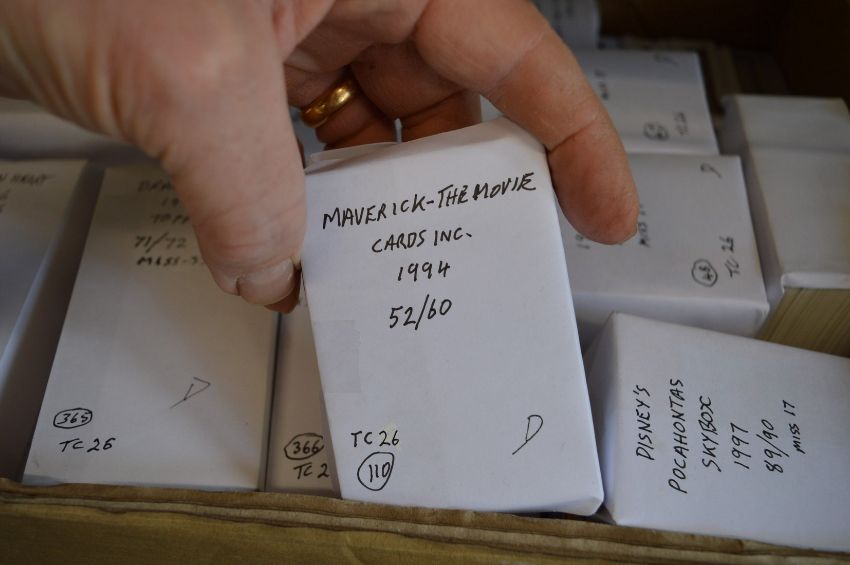 MAVERICK-THE MOVIE
CARDS INC.
1994
52/60
TC 26
110
D
71/72
365
TC 26
D
366
TC 2
DISNEY'S
POCAHONTAS
SKYBOX
1997
89/90
MISS 17
TC 26
D